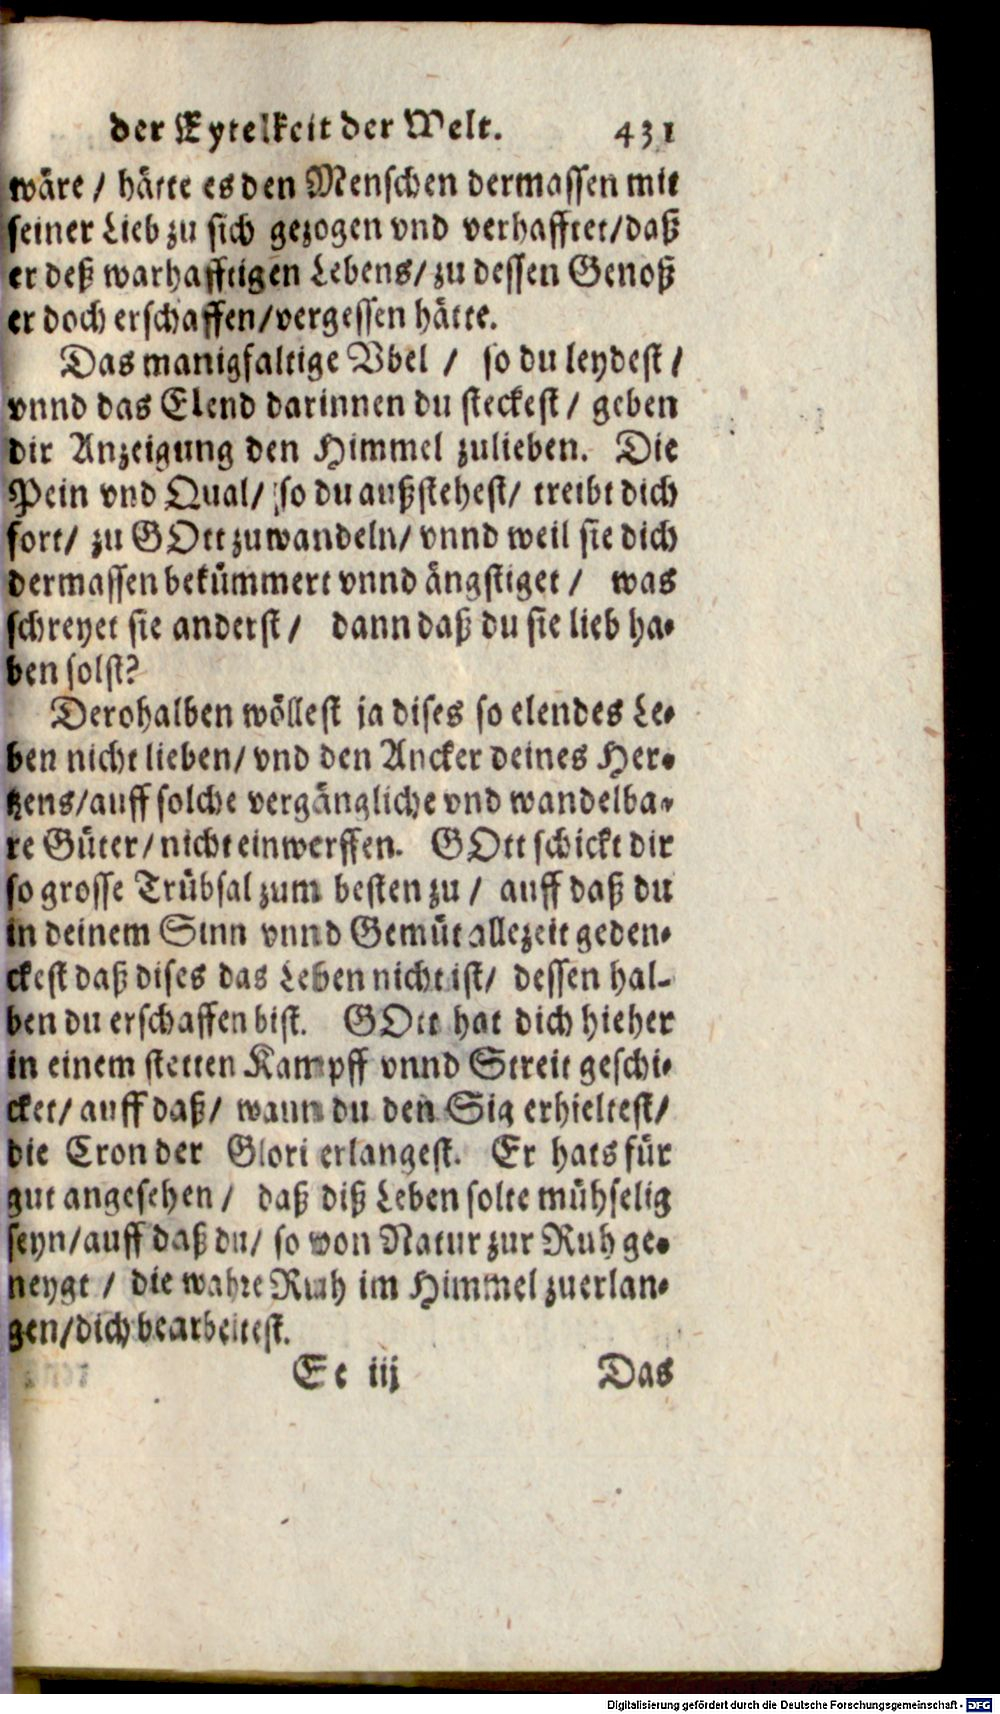 der Eytelkeit der Welt. 431
wäre / hätte es den Menschen dermassen mit
seiner Lieb zu sich gezogen vnd verhafftet/daß
er deß warhafftigen Lebens/zu dessen Genoß
er doch erschaffen/vergessen hätte.
Das manigfaltige Vbel / so du leydest /
vnnd das Elend darinnen du steckest / geben
dir Anzeigung den Himmel zulieben. Die
Pein vnd Qual/ so du außstehest/ treibt dich
fort/ zu GOtt zuwandeln/ vnnd weil sie dich
dermassen bekümmert vnnd ängstiget / was
schreyet sie anderst / dann daß du sie lieb ha-
ben solst?
Derohalben wöllest ja dises so elendes Le-
ben nicht lieben/ vnd den Ancker deines Her-
tzens/auff solche vergängliche vnd wandelba-
re Güter/nicht einwerffen. GOtt schickt dir
so grosse Trübsal zum besten zu / auff daß du
in deinem Sinn vnnd Gemüt allezeit geden-
ckest daß dises das Leben nicht ist/ dessen hal-
ben du erschaffen bist. GOtt hat dich hieher
in einem stetten Kampff vnnd Streit geschi-
cket/ auff daß/ wann du den Sig erhieltest/
die Cron der Glori erlangest. Er hats für
gut angesehen / daß diß Leben solte mühselig
seyn/auff daß du/ so von Natur zur Ruh ge-
neygt / die wahre Ruh im Himmel zuerlan-
gen/dich bearbeitest.
Ee iij Das
Digitalisierung gefördert durch die Deutsche Forschungsgemeinschaft - DFG